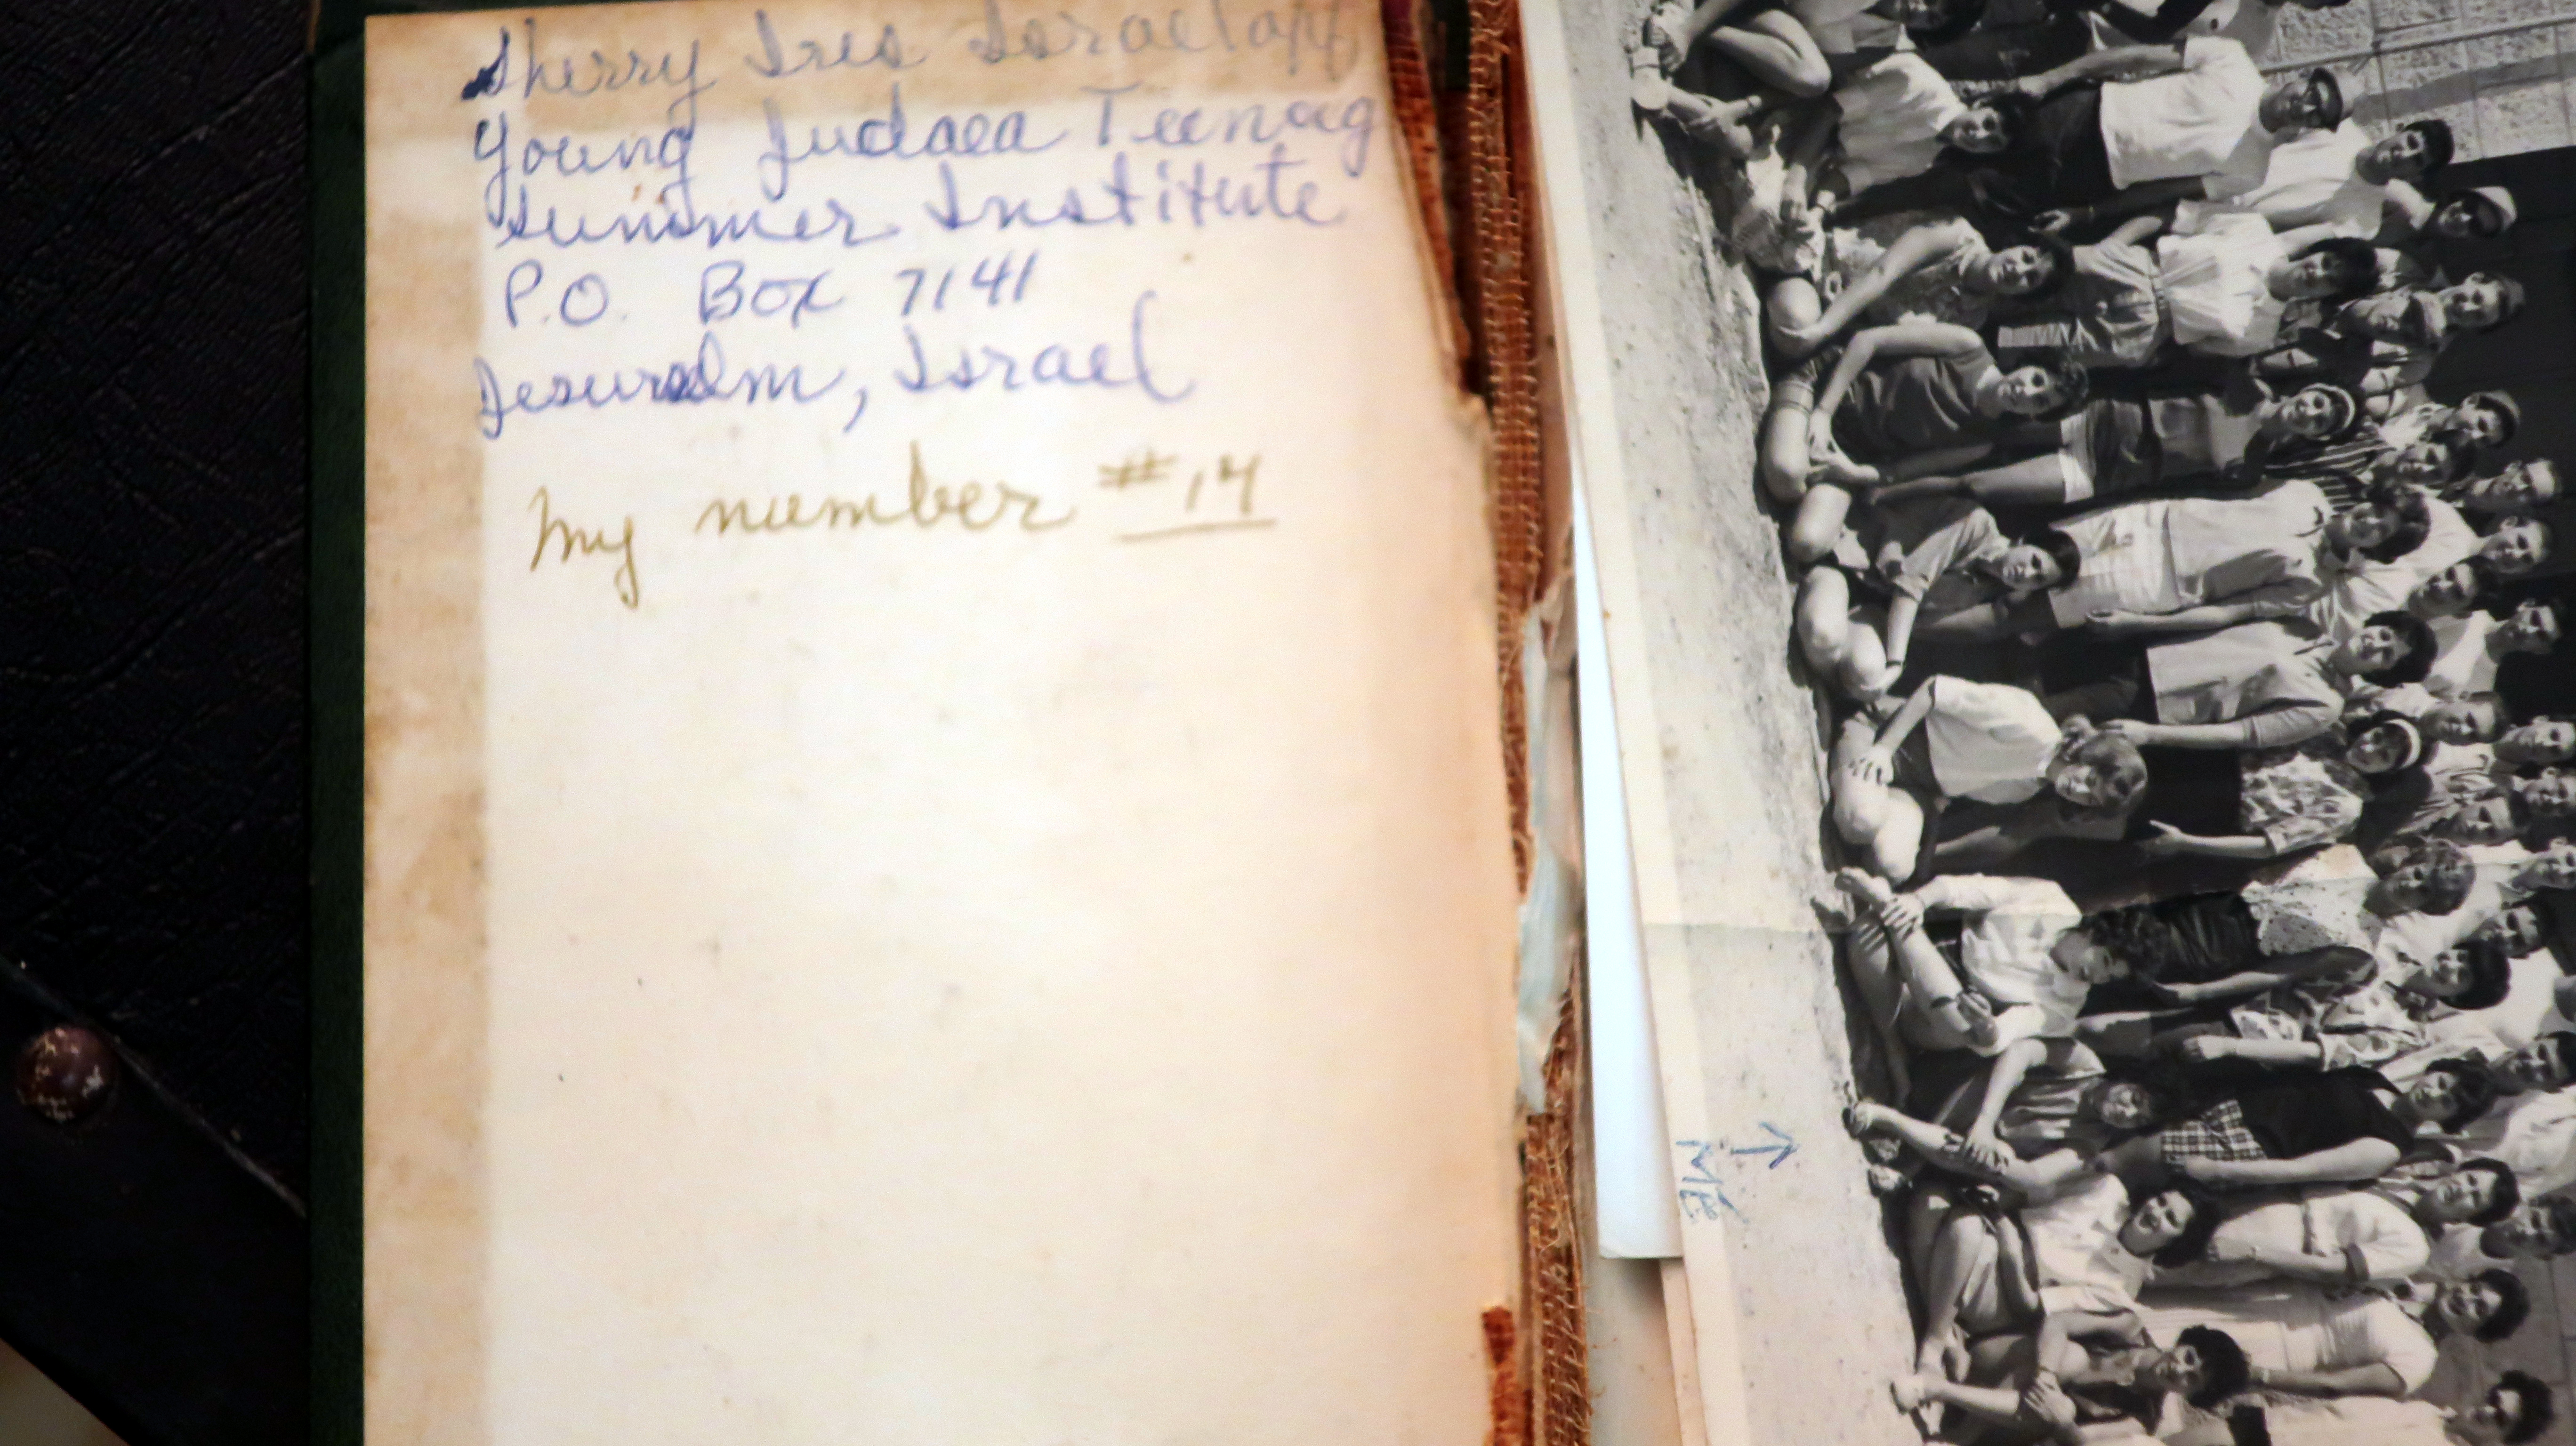 Sherry Iris Israeloff
Young Judaea Teenag
Summer Institute
P.O. Box 7141
Jesuralm, Israel
My number #14
↑
ME